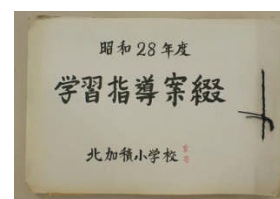 昭和28年度
学習指導案綴
北加積小学校